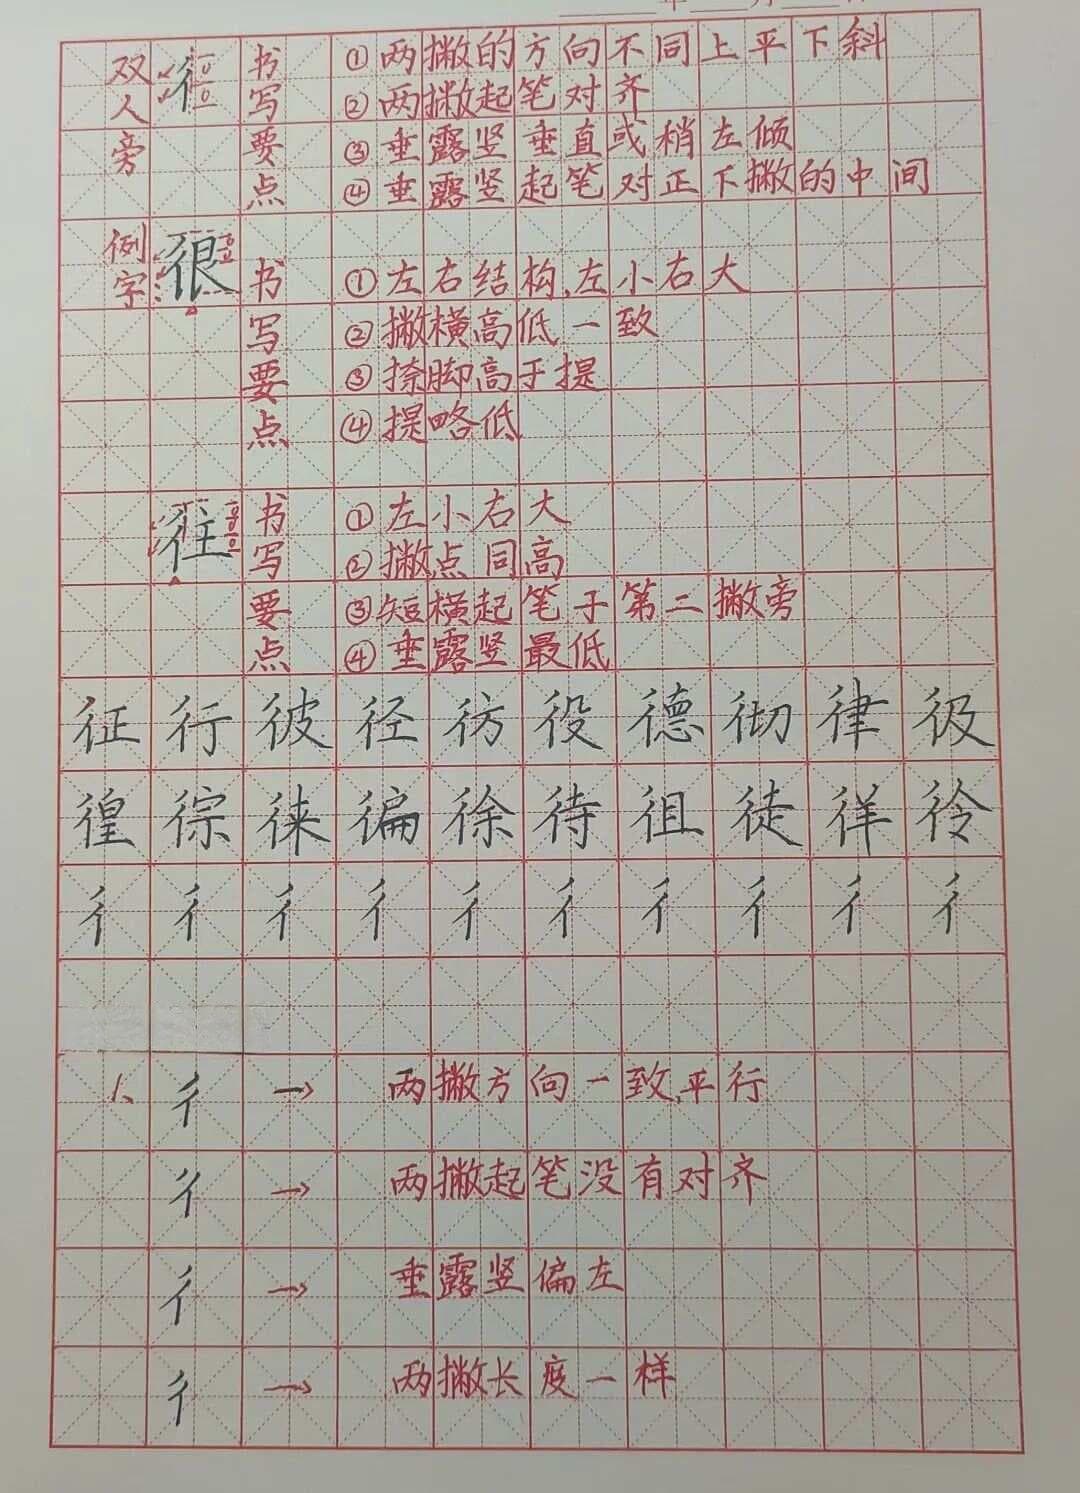 年 月
双人旁 彳 书写要点
①两撇的方向不同上平下斜
②两撇起笔对齐
③垂露竖垂直或稍左倾
④垂露竖起笔对正下撇的中间
例字 很 书写要点
①左右结构,左小右大
②撇横高低一致
③捺脚高于提
④提略低
往 书写要点
①左小右大
②撇点同高
③短横起笔于第二撇旁
④垂露竖最低
征行彼径彷役德彻律彶
徨徖徕徧徐待徂徒徉彾
彳彳彳彳彳彳彳彳彳彳
彳 → 两撇方向一致,平行
彳 → 两撇起笔没有对齐
彳 → 垂露竖偏左
彳 → 两撇长度一样